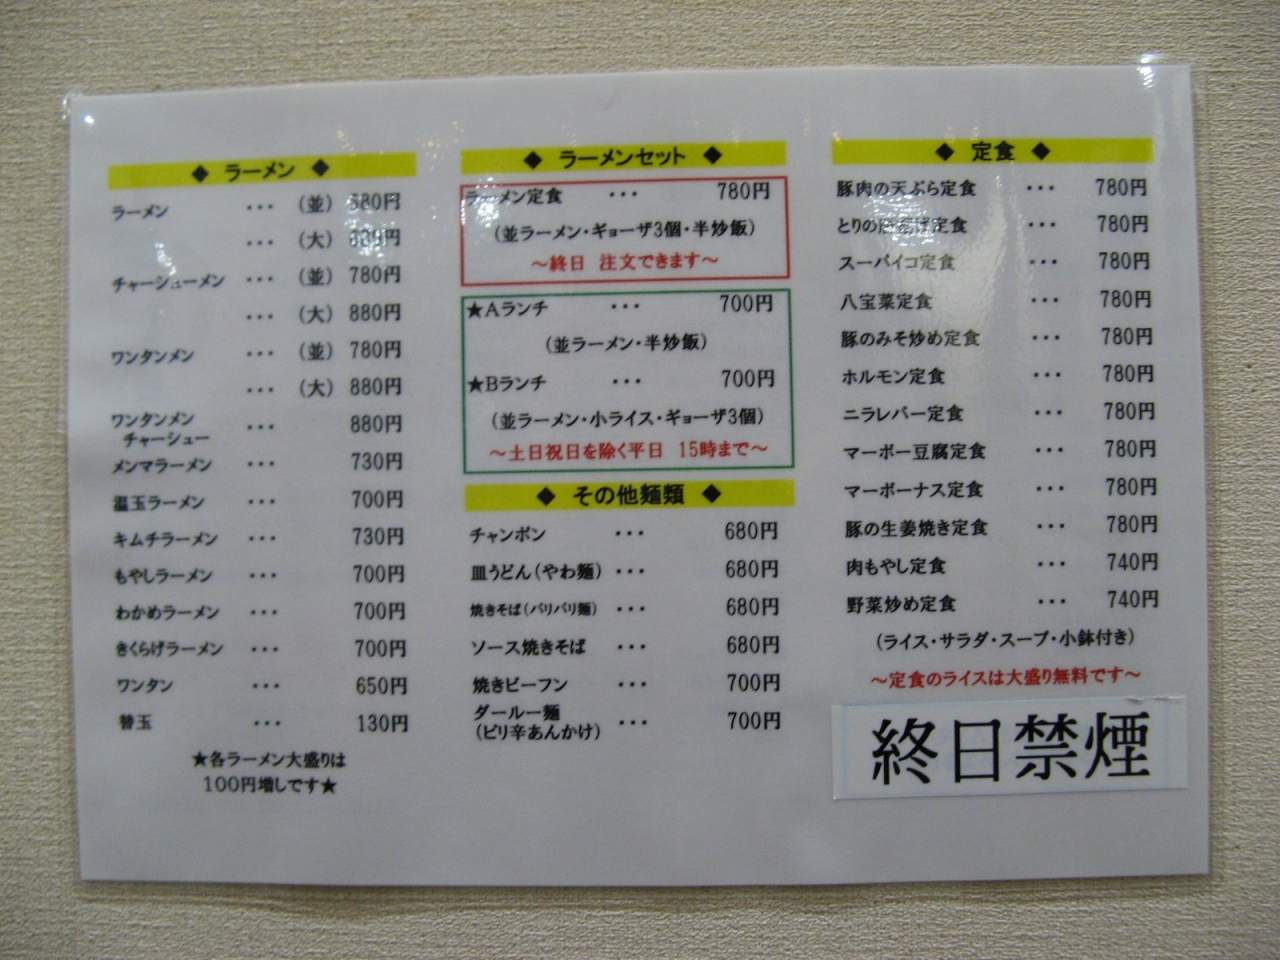 ◆ ラーメン ◆
ラーメン ・・・ (並) 580円
・・・ (大)
チャーシューメン ・・・ (並) 780円
・・・ (大) 880円
ワンタンメン ・・・ (並) 780円
・・・ (大) 880円
ワンタンメン
チャーシュー ・・・ 880円
メンマラーメン ・・・ 730円
温玉ラーメン ・・・ 700円
キムチラーメン ・・・ 730円
もやしラーメン ・・・ 700円
わかめラーメン ・・・ 700円
きくらげラーメン ・・・ 700円
ワンタン ・・・ 650円
替玉 ・・・ 130円
★各ラーメン大盛りは
100円増しです★
◆ ラーメンセット ◆
ラーメン定食 ・・・ 780円
(並ラーメン・ギョーザ3個・半炒飯)
～終日 注文できます～
★Aランチ ・・・ 700円
(並ラーメン・半炒飯)
★Bランチ ・・・ 700円
(並ラーメン・小ライス・ギョーザ3個)
～土日祝日を除く平日 15時まで～
◆ その他麺類 ◆
チャンポン ・・・ 680円
皿うどん(やわ麺) ・・・ 680円
焼きそば(バリバリ麺) ・・・ 680円
ソース焼きそば ・・・ 680円
焼きビーフン ・・・ 700円
ダールー麺
(ピリ辛あんかけ) ・・・ 700円
◆ 定食 ◆
豚肉の天ぷら定食 ・・・ 780円
とりの唐揚げ定食 ・・・ 780円
スーパイコ定食 ・・・ 780円
八宝菜定食 ・・・ 780円
豚のみそ炒め定食 ・・・ 780円
ホルモン定食 ・・・ 780円
ニラレバー定食 ・・・ 780円
マーボー豆腐定食 ・・・ 780円
マーボーナス定食 ・・・ 780円
豚の生姜焼き定食 ・・・ 780円
肉もやし定食 ・・・ 740円
野菜炒め定食 ・・・ 740円
(ライス・サラダ・スープ・小鉢付き)
～定食のライスは大盛り無料です～
終日禁煙